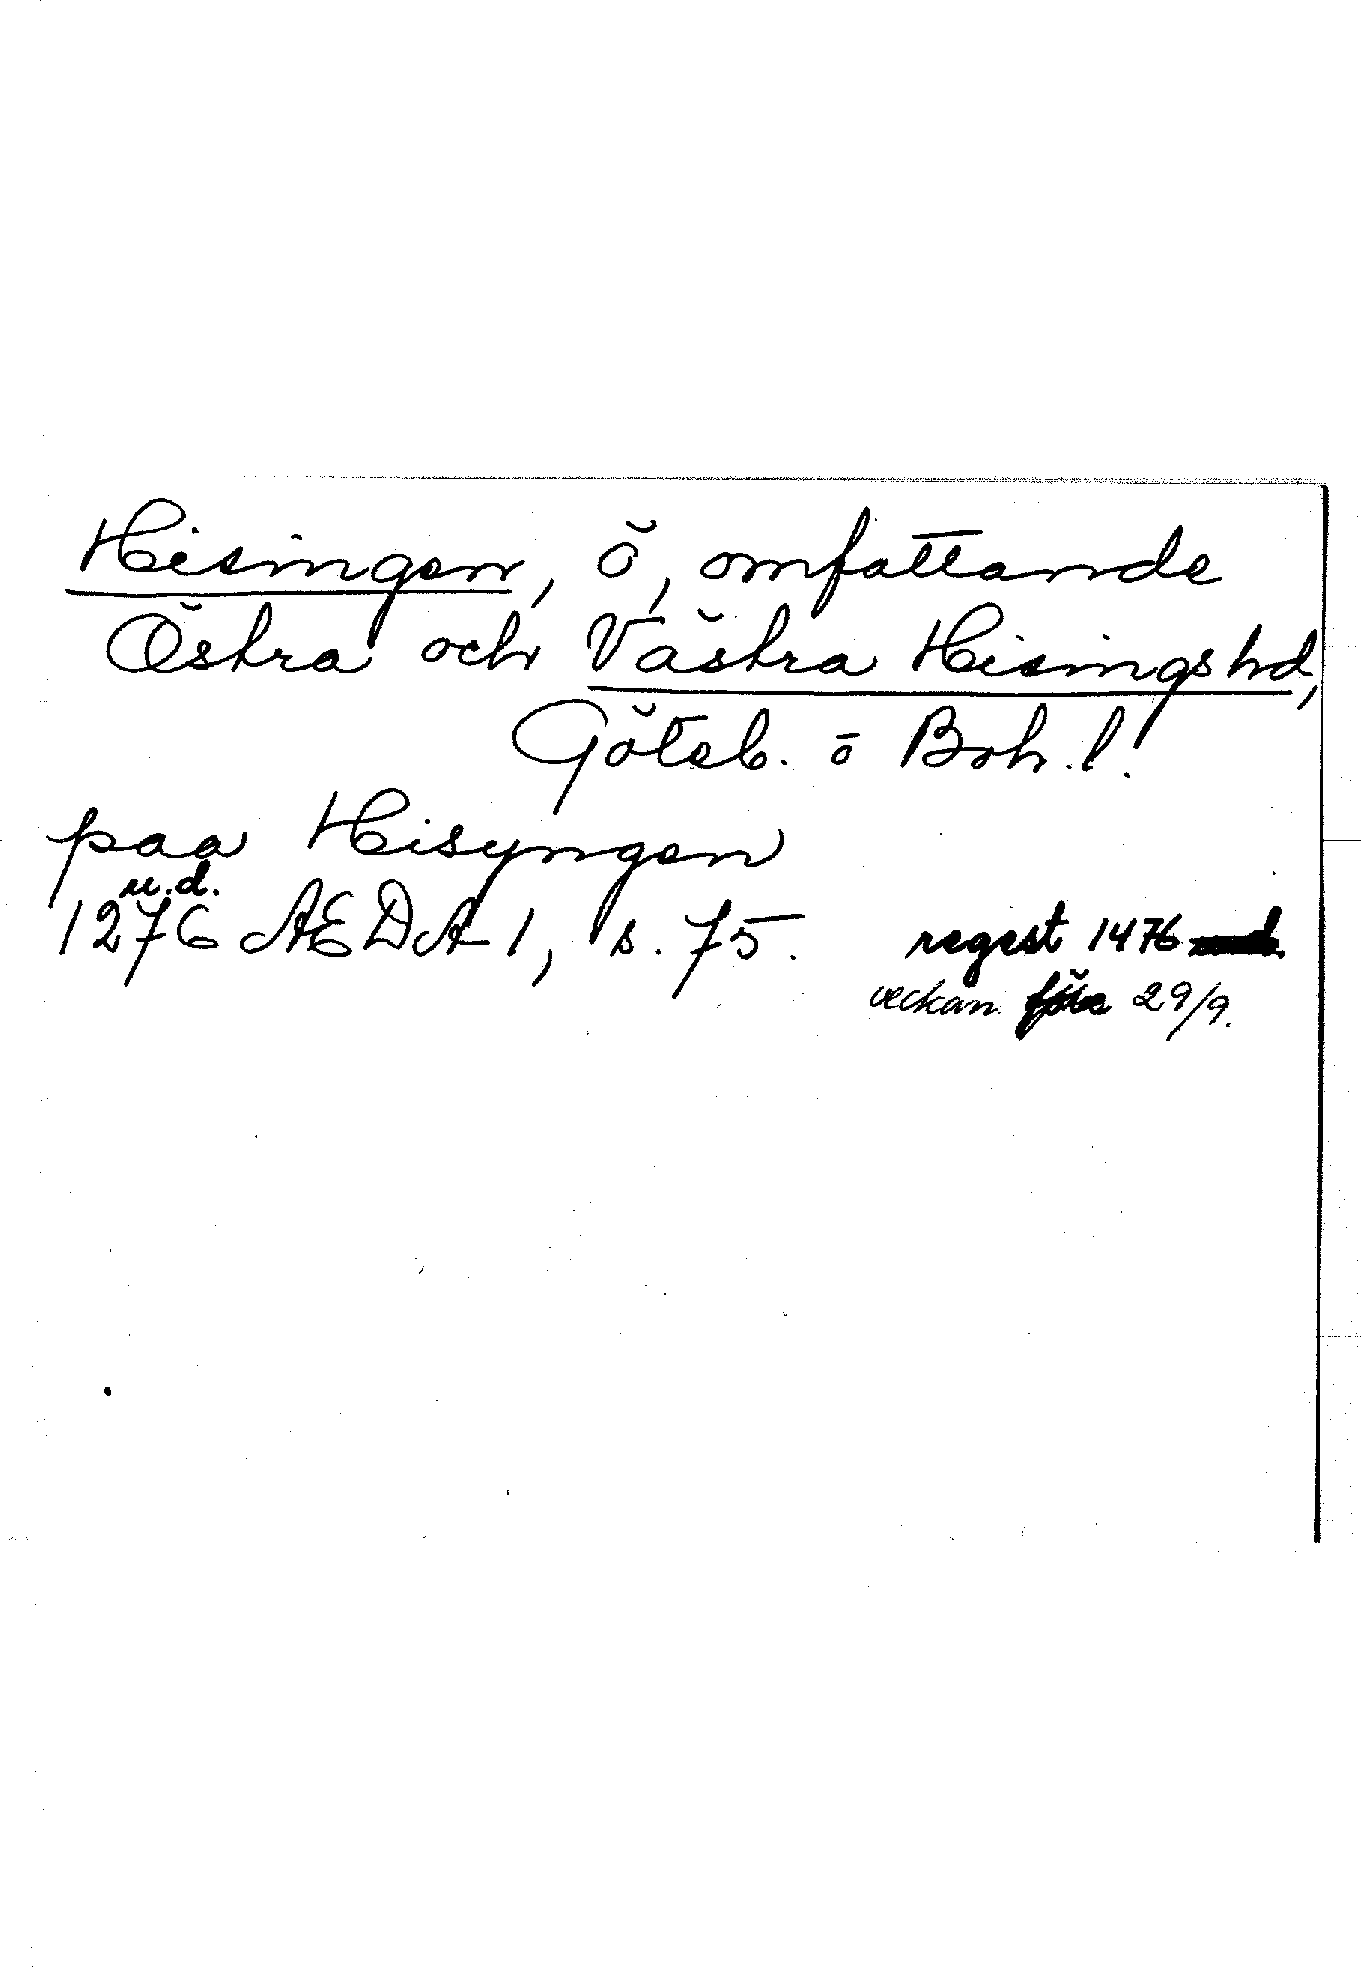 Hisingen, ö, omfattande
Östra och Västra Hisings hd,
Göteb. o Boh. l.
paa Hisyngen
u.d.
1276 AEDA 1, s. 75. regest 1476
veckan före 29/9.